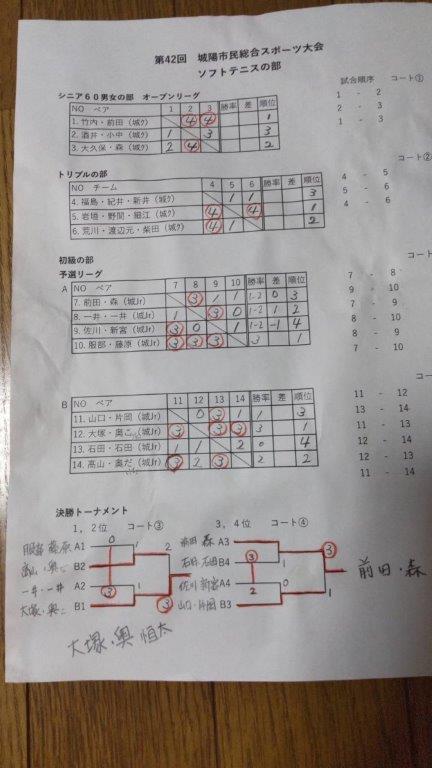 第42回 城陽市民総合スポーツ大会
ソフトテニスの部
シニア60男女の部 オープンリーグ
試合順序 コート①
NO ペア 1 2 3 勝率 差 順位
1 - 2
1. 竹内・前田(城ｸ) ④ ④ 1
2 - 3
2. 酒井・小中(城ｸ) 1 3 3
1 - 3
3. 大久保・森(城ｸ) 2 ④ 2
トリプルの部
コート②
NO チーム 4 5 6 勝率 差 順位
4 - 5
4. 福島・紀井・新井(城ｸ) 1 1 3
5 - 6
5. 岩垣・野間・細江(城ｸ) ④ ④ 1
4 - 6
6. 荒川・渡辺元・柴田(城ｸ) ④ 1 2
初級の部
予選リーグ
A NO ペア 7 8 9 10 勝率 差 順位
7 - 8
7. 前田・森(城Jr) ③ 1 1 1-2 0 3
9 - 10
8. 一井・一井(城Jr) 1 ③ 0 1-2 1 2
7 - 9
9. 佐川・新宮(城Jr) ③ 0 1 1-2 -1 4
8 - 10
10. 服部・藤原(城Jr) ③ ③ ③ 3 1
8 - 9
7 - 10
B NO ペア 11 12 13 14 勝率 差 順位
11 - 12
11. 山口・片岡(城Jr) 0 ③ 1 1 3
13 - 14
12. 大塚・奥こ(城Jr) ③ ③ ③ 3 1
11 - 13
13. 石田・石田(城Jr) 1 2 0 4
12 - 14
14. 高山・奥だ(城Jr) ③ 2 ③ 2 2
12 - 13
11 - 14
決勝トーナメント
1, 2位 コート③
3, 4位 コート④
服部 藤原 A1 0 1 2
前田 森 A3
高山・奥 B2
石田・石田 B4 ③ 1 ③
前田・森
一井・一井 A2 ③ 1
佐川 新宮 A4 2 0 1
大塚・奥こ B1 ③
山口・片岡 B3
大塚・奥 恒太